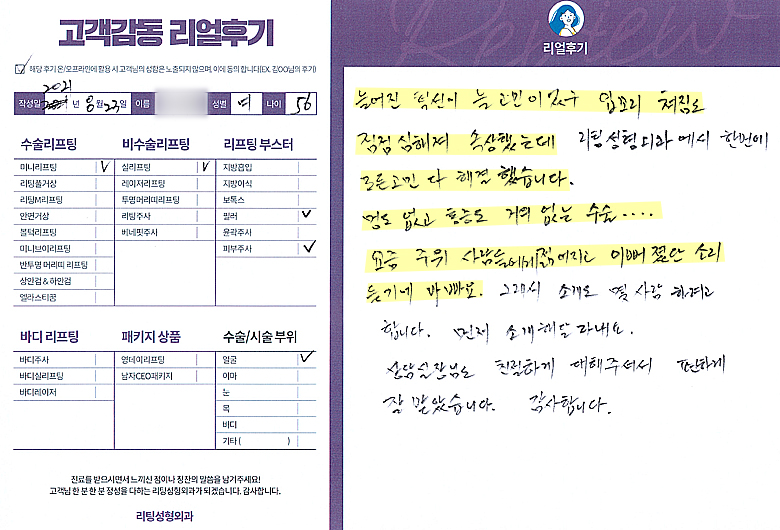 고객감동 리얼후기
해당 후기 온/오프라인에 활용 시 고객님의 성함은 노출되지 않으며, 이에 동의 합니다(EX. 김OO님의 후기)
2021
작성일 년 8월 23일 이름 성별 여 나이 56
수술리프팅 비수술리프팅 리프팅 부스터
미니리프팅 ✓ 실리프팅 ✓ 지방흡입
리팅풀거상 레이저리프팅 지방이식
리팅M리프팅 투명머리띠리프팅 보톡스
안면거상 리팅주사 필러 ✓
볼턱리프팅 베네핏주사 윤곽주사
미니브이리프팅 피부주사 ✓
반투명 머리띠 리프팅
상안검 & 하안검
엘라스티꿈
바디 리프팅 패키지 상품 수술/시술 부위
바디주사 영데이리프팅 얼굴 ✓
바디실리프팅 남자CEO패키지 이마
바디레이저 눈
목
바디
기타 ( )
진료를 받으시면서 느끼신 점이나 칭찬의 말씀을 남겨주세요!
고객님 한 분 한 분 정성을 다하는 리팅성형외과가 되겠습니다. 감사합니다.
리팅성형외과
Review
리얼후기
늘어진 턱선이 늘 고민이었구 입꼬리 처짐도
점점 심해져 속상했는데 리팅성형외과에서 한번에
모든고민 다 해결 했습니다.
멍도 없고 통증도 거의 없는 수술....
요즘 주위 사람들에게 젊어지고 이뻐졌단 소리
듣기에 바빠요. 그래서 소개도 몇 사람 하려고
합니다. 먼저 소개해달라네요.
상담실장님도 친절하게 대해주셔서 편안하게
잘 받았습니다. 감사합니다.